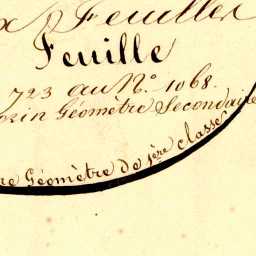 x Feuilles
Feuille
723 au N.º 1068.
Géomètre Secondaire
re Géomètre de 1ère classe